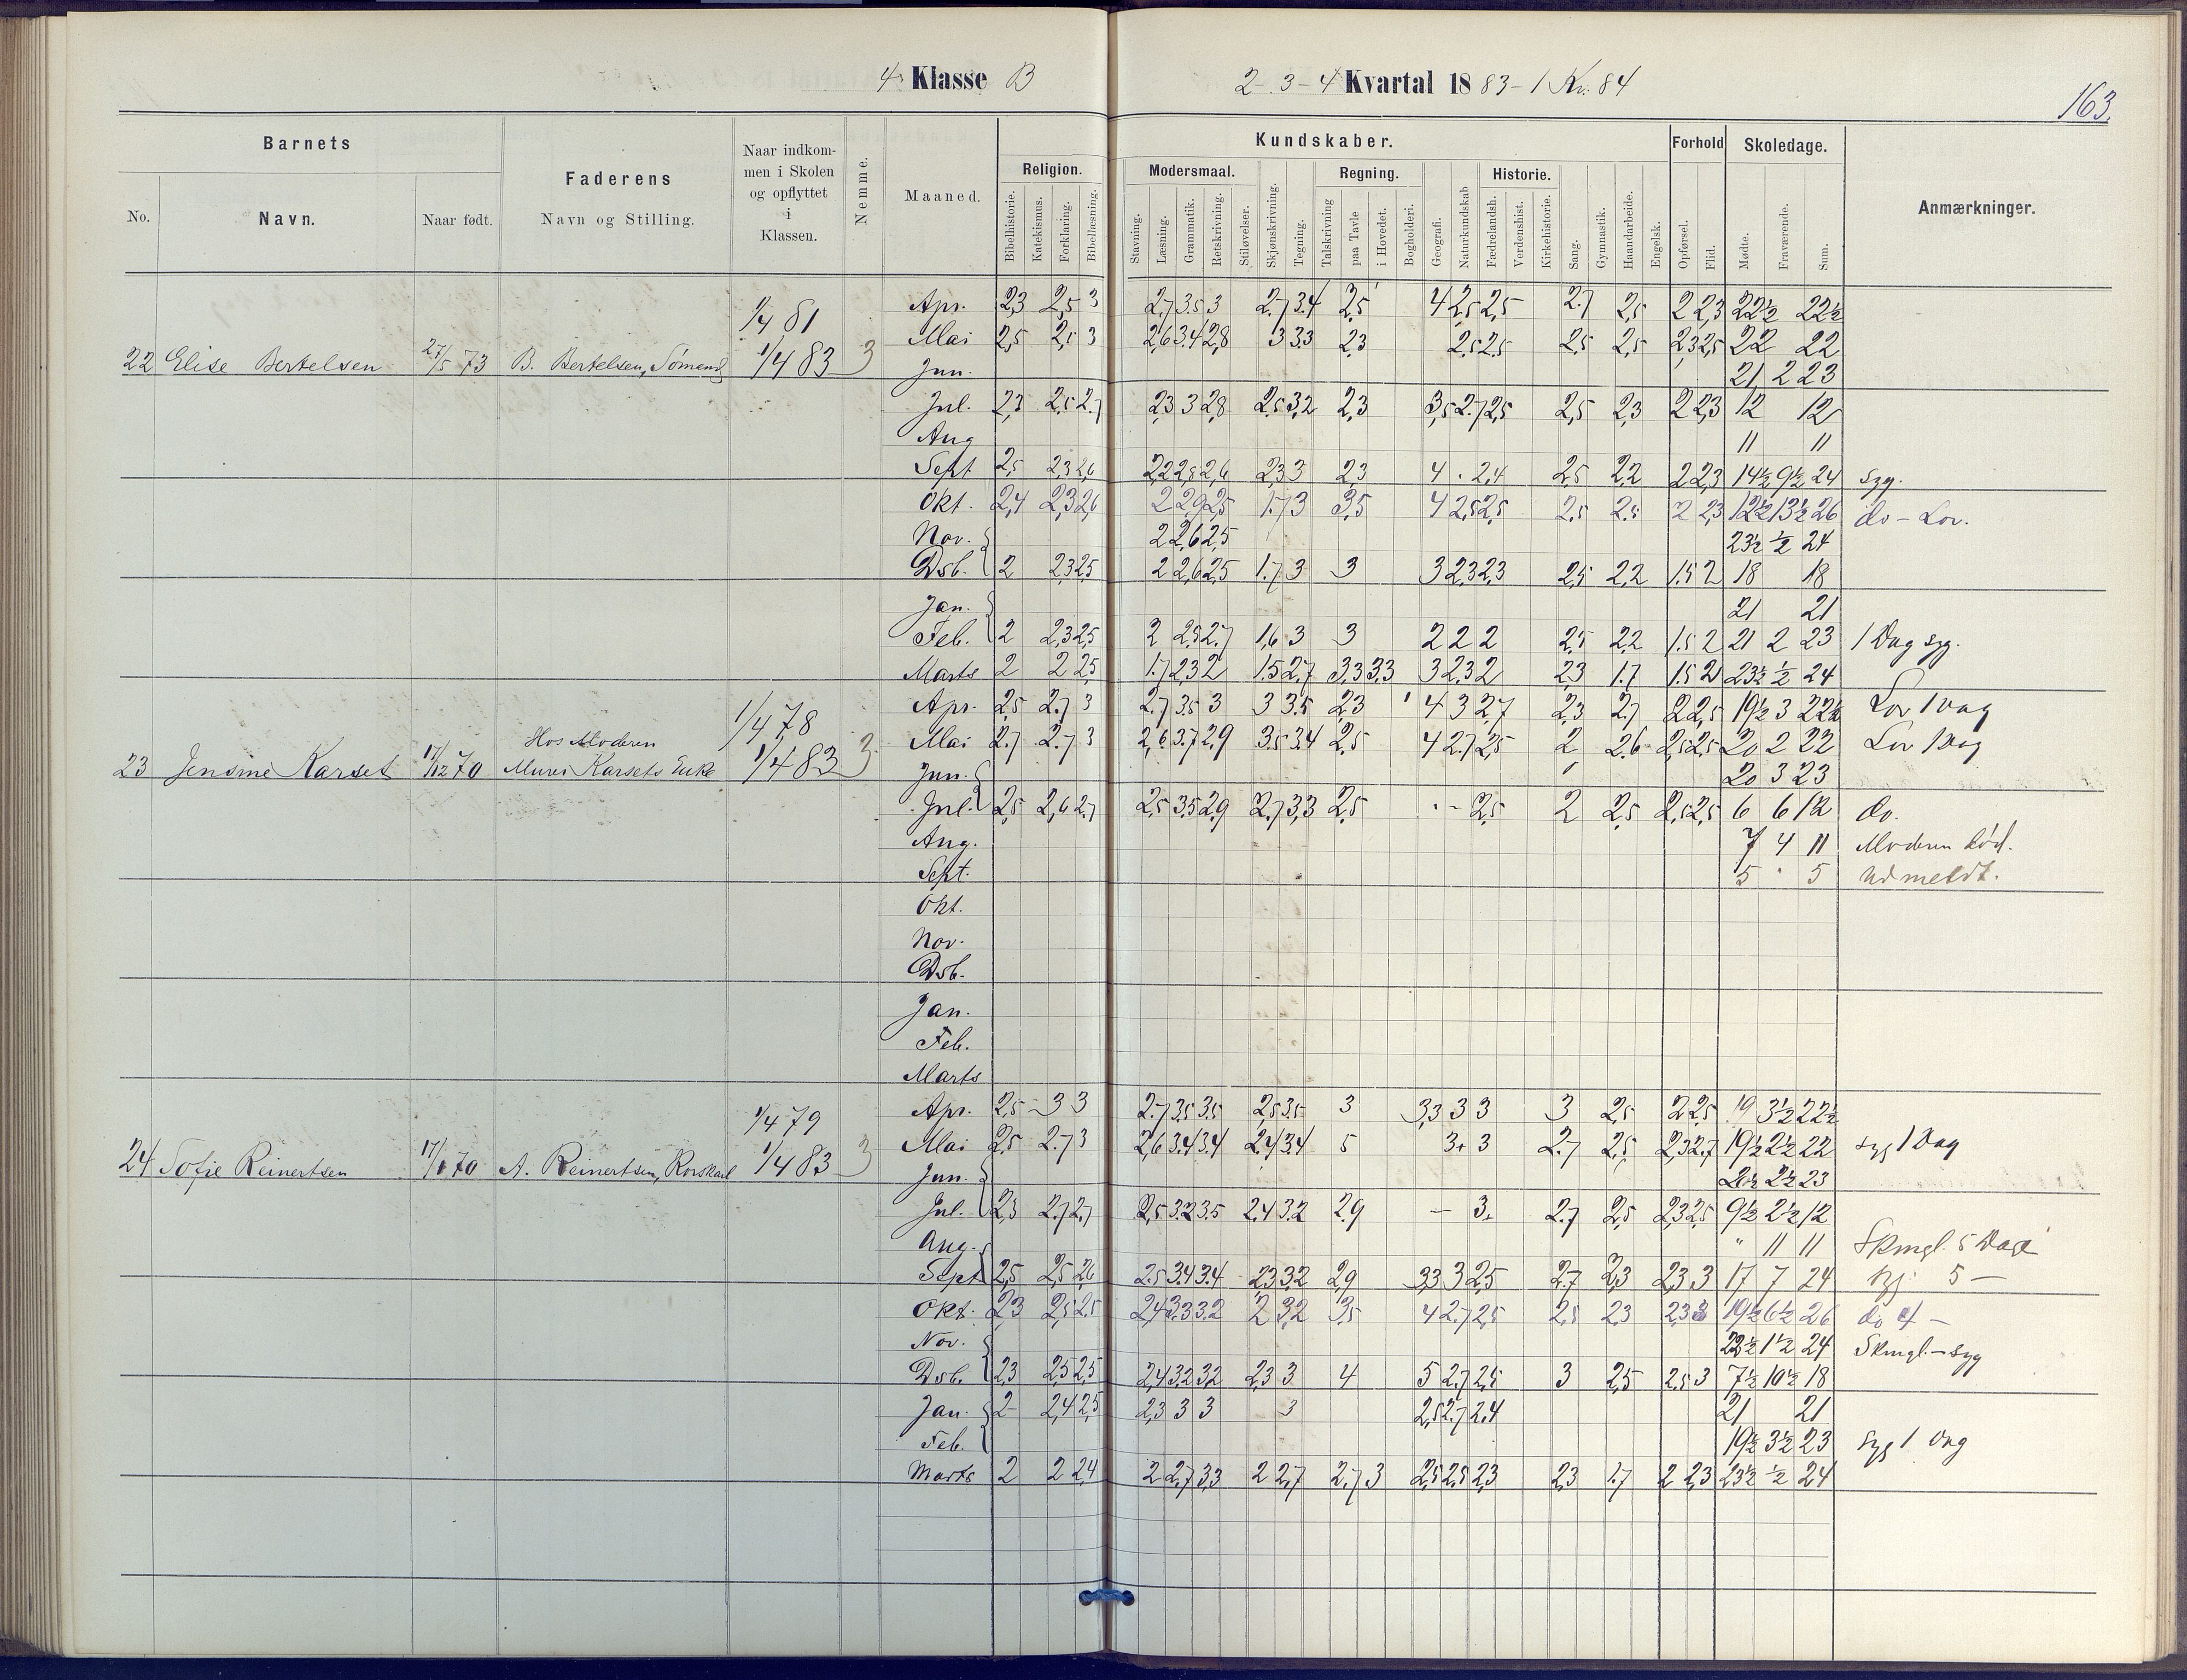 4 Klasse B 2-3-4 Kvartal 1883-1 Kv. 84
163.
Barnets
No. Navn. Naar født.
Faderens
Navn og Stilling.
Naar indkom-
men i Skolen
og opflyttet
i
Klassen.
Nemme.
Maaned.
Kundskaber.
Religion.
Bibelhistorie. Katekismus. Forklaring. Bibellæsning.
Modersmaal.
Stavning. Læsning. Grammatik. Retskrivning. Stiløvelser. Skjønskrivning. Tegning.
Regning.
Talskrivning paa Tavle i Hovedet. Bogholderi. Geografi. Naturkundskab
Historie.
Fædrelandsh. Verdenshist. Kirkehistorie. Sang. Gymnastik. Haandarbeide. Engelsk.
Forhold
Opførsel. Flid.
Skoledage.
Mødte. Fraværende. Sum.
Anmærkninger.
1/4 81
22 Elise Bertelsen 27/5 73 B. Bertelsen, Sømand 1/4 83 3
Apr. 2,3 2,5 3 2,7 3,5 3 2,7 3,4 2,5 4 2,5 2,5 2,7 2,5 2 2,3 22½ 22½
Mai 2,5 2,5 3 2,6 3,4 2,8 3 3,3 2,3 2,5 2,5 2,5 2,5 2,3 2,5 22 22
Jun. 21 2 23
Jul. 2,3 2,5 2,7 2,3 3 2,8 2,5 3,2 2,3 3,5 2,7 2,5 2,5 2,3 2 2,3 12 12
Aug 11 11
Sept 2,5 2,3 2,6 2,2 2,8 2,6 2,3 3 2,3 4 . 2,4 2,5 2,2 2 2,3 14½ 9½ 24 syg.
Okt. 2,4 2,3 2,6 2 2,9 2,5 1,7 3 3,5 4 2,5 2,5 2,5 2,5 2 2,3 12½ 13½ 26 do - Lov.
Nov. 2 2,6 2,5 23½ ½ 24
Dsb. 2 2,3 2,5 2 2,6 2,5 1,7 3 3 3 2,3 2,3 2,5 2,2 1,5 2 18 18
Jan. 21 21
Feb. 2 2,3 2,5 2 2,5 2,7 1,6 3 3 2 2 2 2,5 2,2 1,5 2 21 2 23 1 Dag syg.
Marts 2 2 2,5 1,7 2,3 2 1,5 2,7 3,3 3,3 3 2,3 2 2,3 1,7 1,5 2 23½ ½ 24
1/4 78
Hos Moderen
23 Jensine Karset 17/12 70 Murer Karsets Enke 1/4 83 3
Apr. 2,5 2,7 3 2,7 3,5 3 3 3,5 2,3 4 3 2,7 2,3 2,7 2 2,5 19½ 3 22½ Lov 1 Dag
Mai 2,7 2,7 3 2,6 3,7 2,9 3,5 3,4 2,5 4 2,7 2,5 2 2,6 2,5 2,5 20 2 22 Lov 1 Dag
Jun. 20 3 23
Jul. 2,5 2,6 2,7 2,5 3,5 2,9 2,7 3,3 2,5 . - 2,5 2 2,5 2,5 2,5 6 6 12 do.
Aug. 7 4 11 Moderen død.
Sept. 5 . 5 Udmeldt.
Okt.
Nov.
Dsb.
Jan.
Feb.
Marts
1/4 79
24 Sofie Reinertsen A. Reinertsen, 1/4 83 3
Apr. 2,5 3 3 2,7 3,5 3,5 2,5 3,5 3 3,3 3 3 3 2,5 2 2,5 19 3½ 22½
Mai 2,5 2,7 3 2,6 3,4 3,4 2,4 3,4 5 3+ 3 2,7 2,5 2,3 2,7 19½ 2½ 22 syg 1 Dag
Jun. 20½ 2½ 23
Jul. 2,3 2,7 2,7 2,5 3,2 3,5 2,4 3,2 2,9 - 3+ 2,7 2,5 2,3 2,5 9½ 2½ 12
Aug. " 11 11 Skmgl. 5 Dage
Sept 2,5 2,5 2,6 2,5 3,4 3,4 2,3 3,2 2,9 3,3 3 2,5 2,7 2,3 2,3 3 17 7 24 syg. 5 -
Okt. 2,3 2,5 2,5 2,4 3,3 3,2 2 3,2 3,5 4 2,7 2,5 2,5 2,3 2,3 3 19½ 6½ 26 do 4 -
Nov. 22½ 1½ 24 Skmgl. - syg
Dsb. 2,3 2,5 2,5 2,4 3,2 3,2 2,3 3 4 5 2,7 2,5 3 2,5 2,5 3 7½ 10½ 18
Jan. 2 2,4 2,5 2,3 3 3 3 2,5 2,7 2,4 21 21
Feb. 19½ 3½ 23 syg 1 Dag
Marts 2 2 2,4 2 2,7 3,3 2 2,7 2,7 3 2,5 2,5 2,3 2,3 1,7 2 2,3 23½ ½ 24